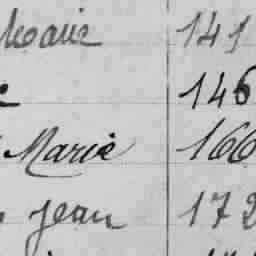 Marie 141
e 146
Marie 166
Jean 172